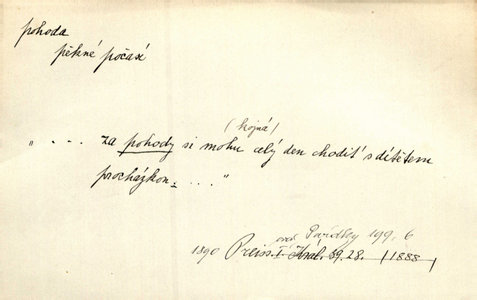 pohoda
pěkné počasí
(hojná)
„ . . . . za pohody si mohu celý den chodit s dítětem
procházkou . . . "
Povídky 199, 6
1890 Preiss. I. Král. 39.28. (1888)